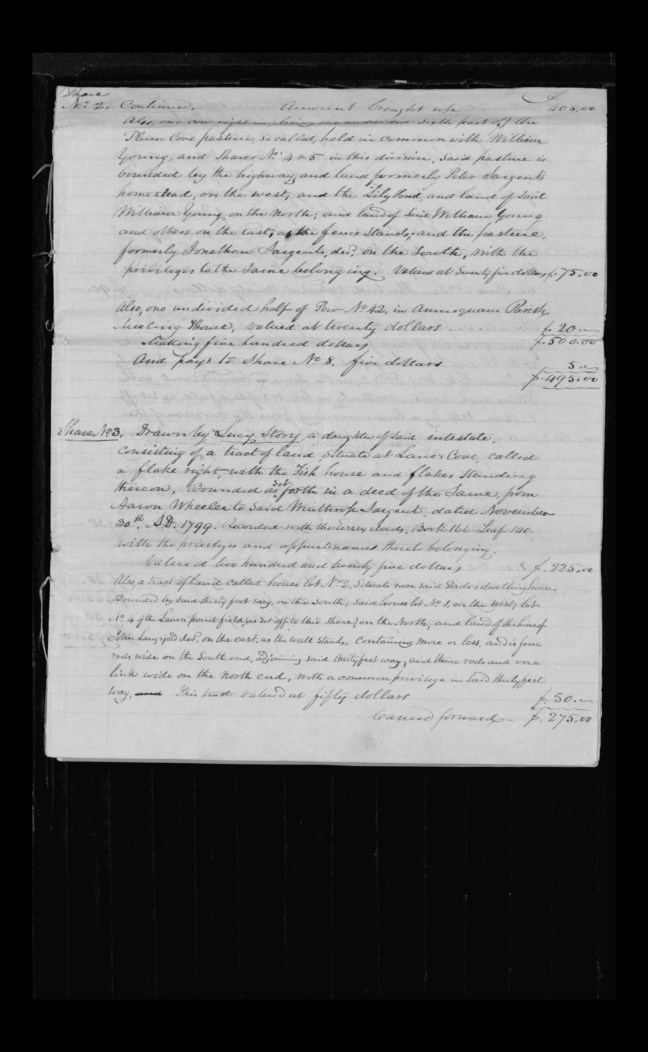 Share
No. 2, Continued. Amount brought up £405,00
Also, one cow right in, being one undivided sixth part of the
Plum Cove pasture, so called, held in common with William
Young, and Shares No. 4 & 5 in this division, said pasture is
bounded by the highway, and land formerly Peter Sargents
homestead, on the west, and the Lily Pond, and land of said
William Young, on the North; and land of said William Young
and others on the east, as the fence Stands, and the pasture,
formerly Jonathan Sargents, decd. on the South, with the
privileges to the Same belonging. Valued at Seventy five dollars $75,00
Also, one undivided half of Pew No. 42, in Annisquam Parish
Meeting House, valued at twenty dollars $20.00
Making five hundred dollars $500.00
And pays to Share No. 8. five dollars 5.00
$495,00
Share No. 3, Drawn by Lucy Story, a daughter of said intestate,
Consisting of a tract of land, Situate at Lanes Cove, called
a flake right, with the Fish house and flakes Standing
thereon, bounded as set forth in a deed of the Same, from
Aaron Wheeler to Said Winthrop Sargent, dated November
30th. A.D. 1799. Recorded with the Essex deeds, Book 166 Leaf 140.
with the privileges and appurtenances thereto belonging.
Valued at two hundred and twenty five dollars $225,00
Also, a tract of land called house lot No. 2, Situate near said Dades dwelling house,
Bounded by said thirty feet way, on the South, Said house lot No. 1, on the West, lot
No. 4 of the Lanes point field, (as set off to this Share) on the North, and land of the heirs of
decd. on the east, as the wall Stands, Containing more or less, and is four
rods wide on the South end, adjoining said thirty feet way, and three rods and one
link wide on the North end, with a common privilege in said thirty feet
way, and This tract valued at fifty dollars $50.00
Carried forward $275,00